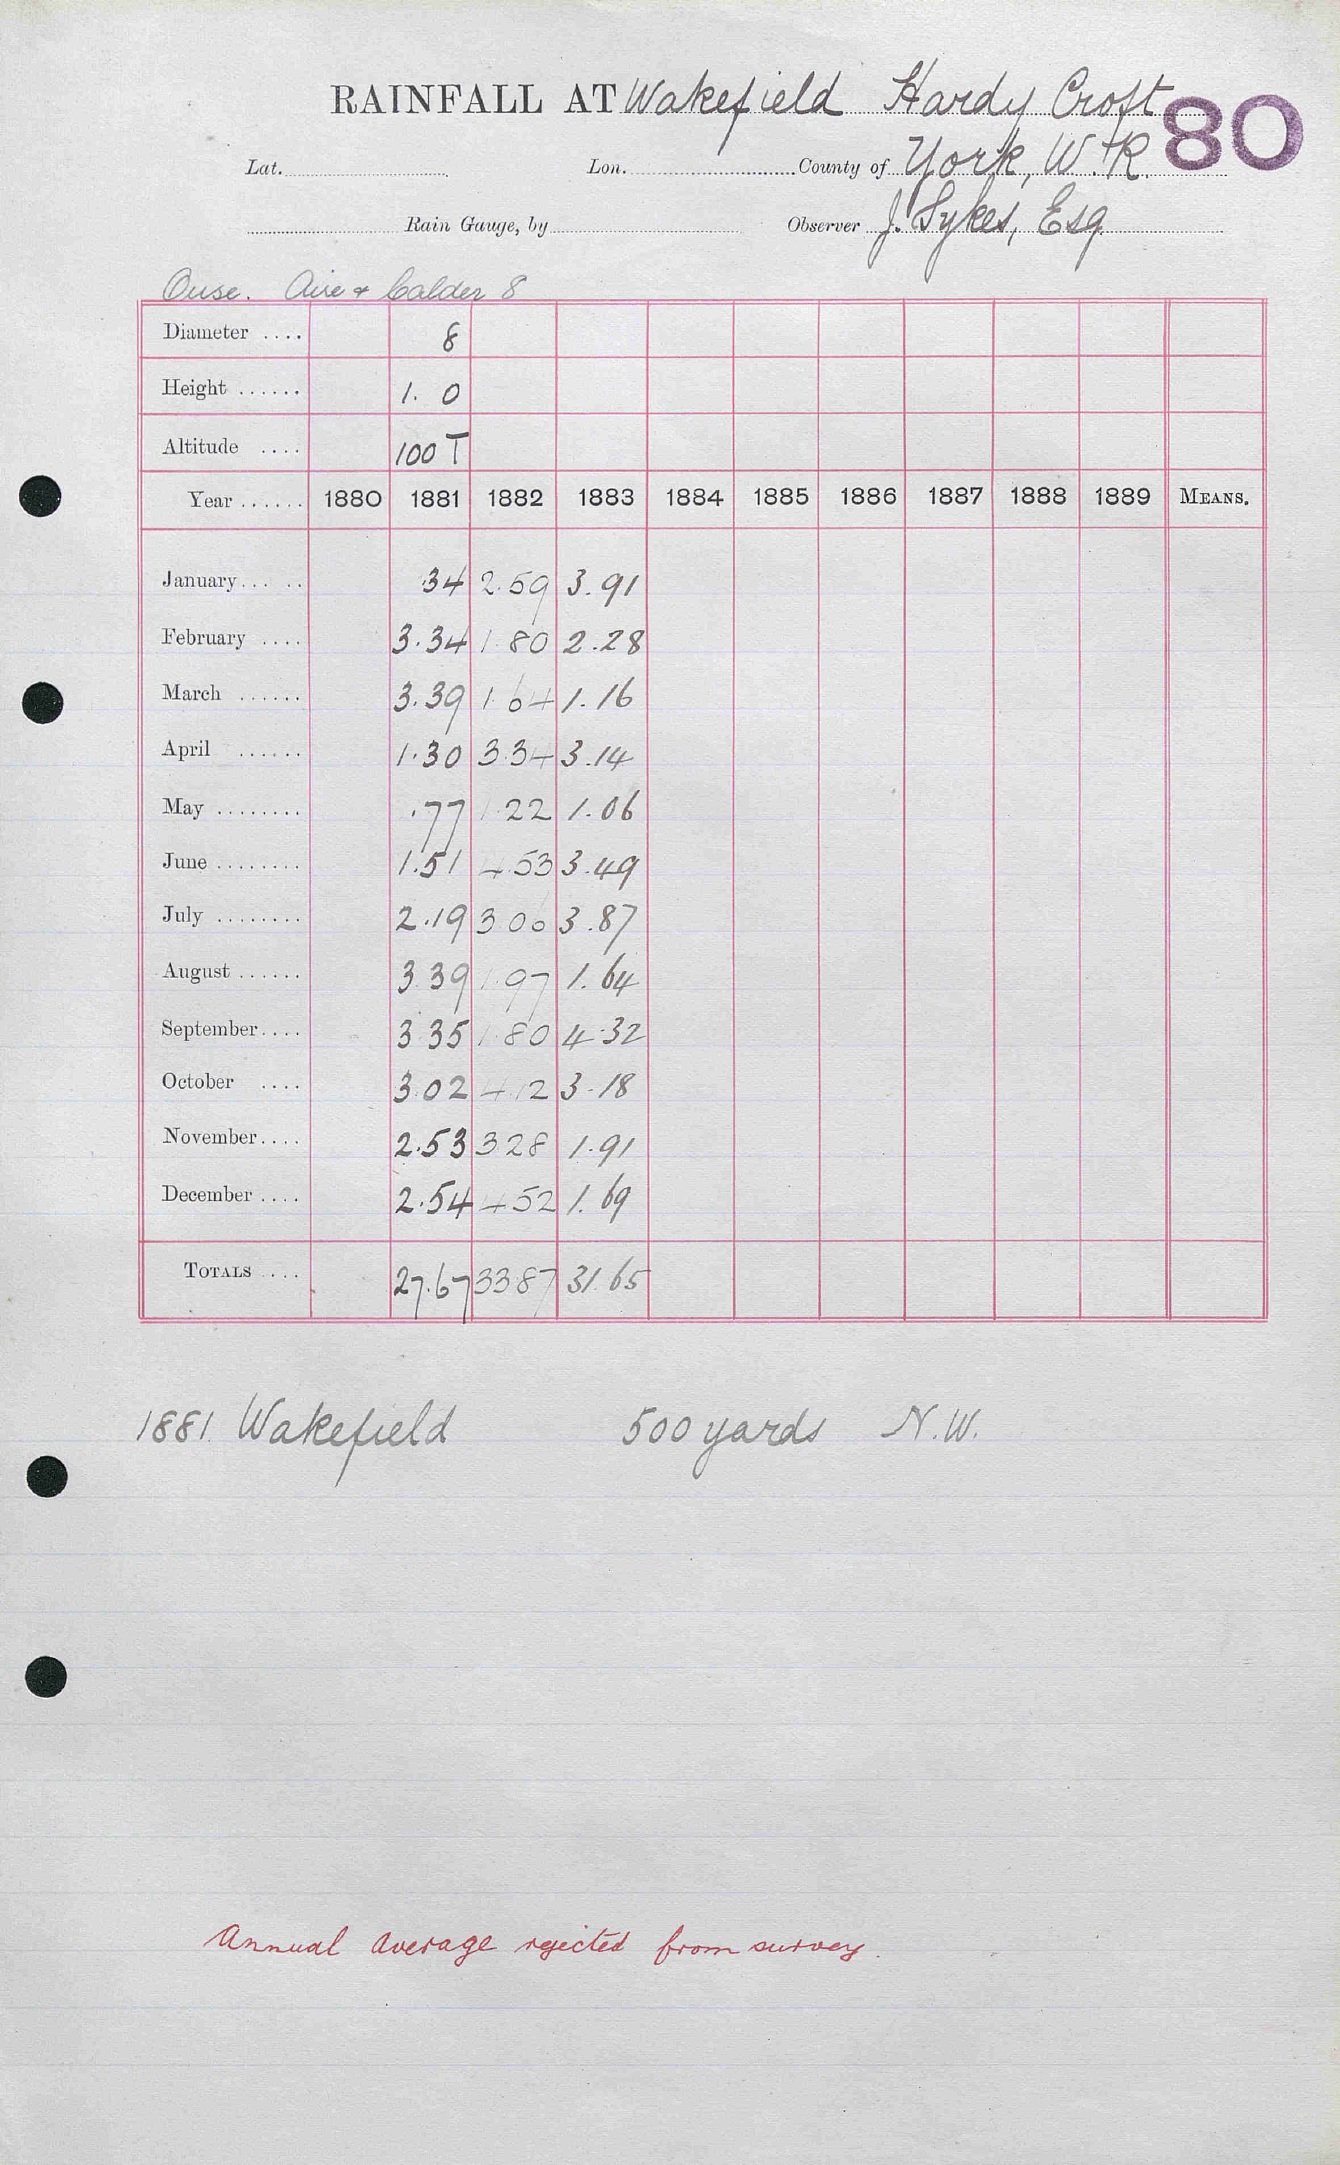 RAINFALL AT Wakefield Hardy Croft 80
Lat. Lon. County of York, W.R.
Rain Gauge, by Observer J. Sykes, Esq.
Ouse. Aire & Calder 8
Diameter .... 8
Height ...... 1. 0
Altitude .... 100 T
Year ...... 1880 1881 1882 1883 1884 1885 1886 1887 1888 1889 MEANS.
January.... .. .34 2.59 3.91
February .... 3.34 1.80 2.28
March ...... 3.39 1.64 1.16
April ...... 1.30 3.34 3.14
May ........ .77 1.22 1.06
June ........ 1.51 4.53 3.49
July ........ 2.19 3 06 3.87
August ...... 3.39 1.97 1.64
September.... 3.35 1.80 4.32
October .... 3.02 4.12 3.18
November.... 2.53 3 28 1.91
December .... 2.54 4 52 1.69
TOTALS .... 27.67 33 87 31.65
1881 Wakefield 500 yards N.W.
Annual average rejected from survey.